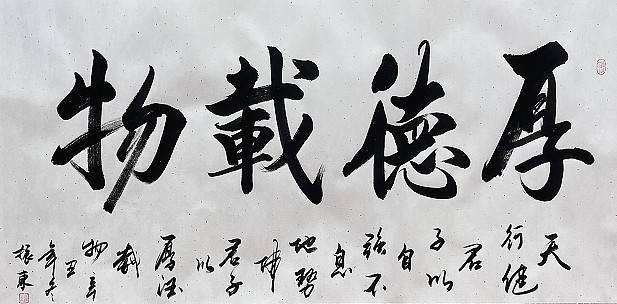 厚德載物
天
行健
君
子以
自
強不
息
地勢
坤
君子
以
厚德
載
物辛
丑
年冬
振東